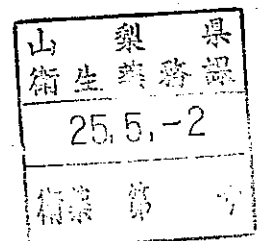 山梨県
衛生薬務課
25.5.-2
衛薬第 号